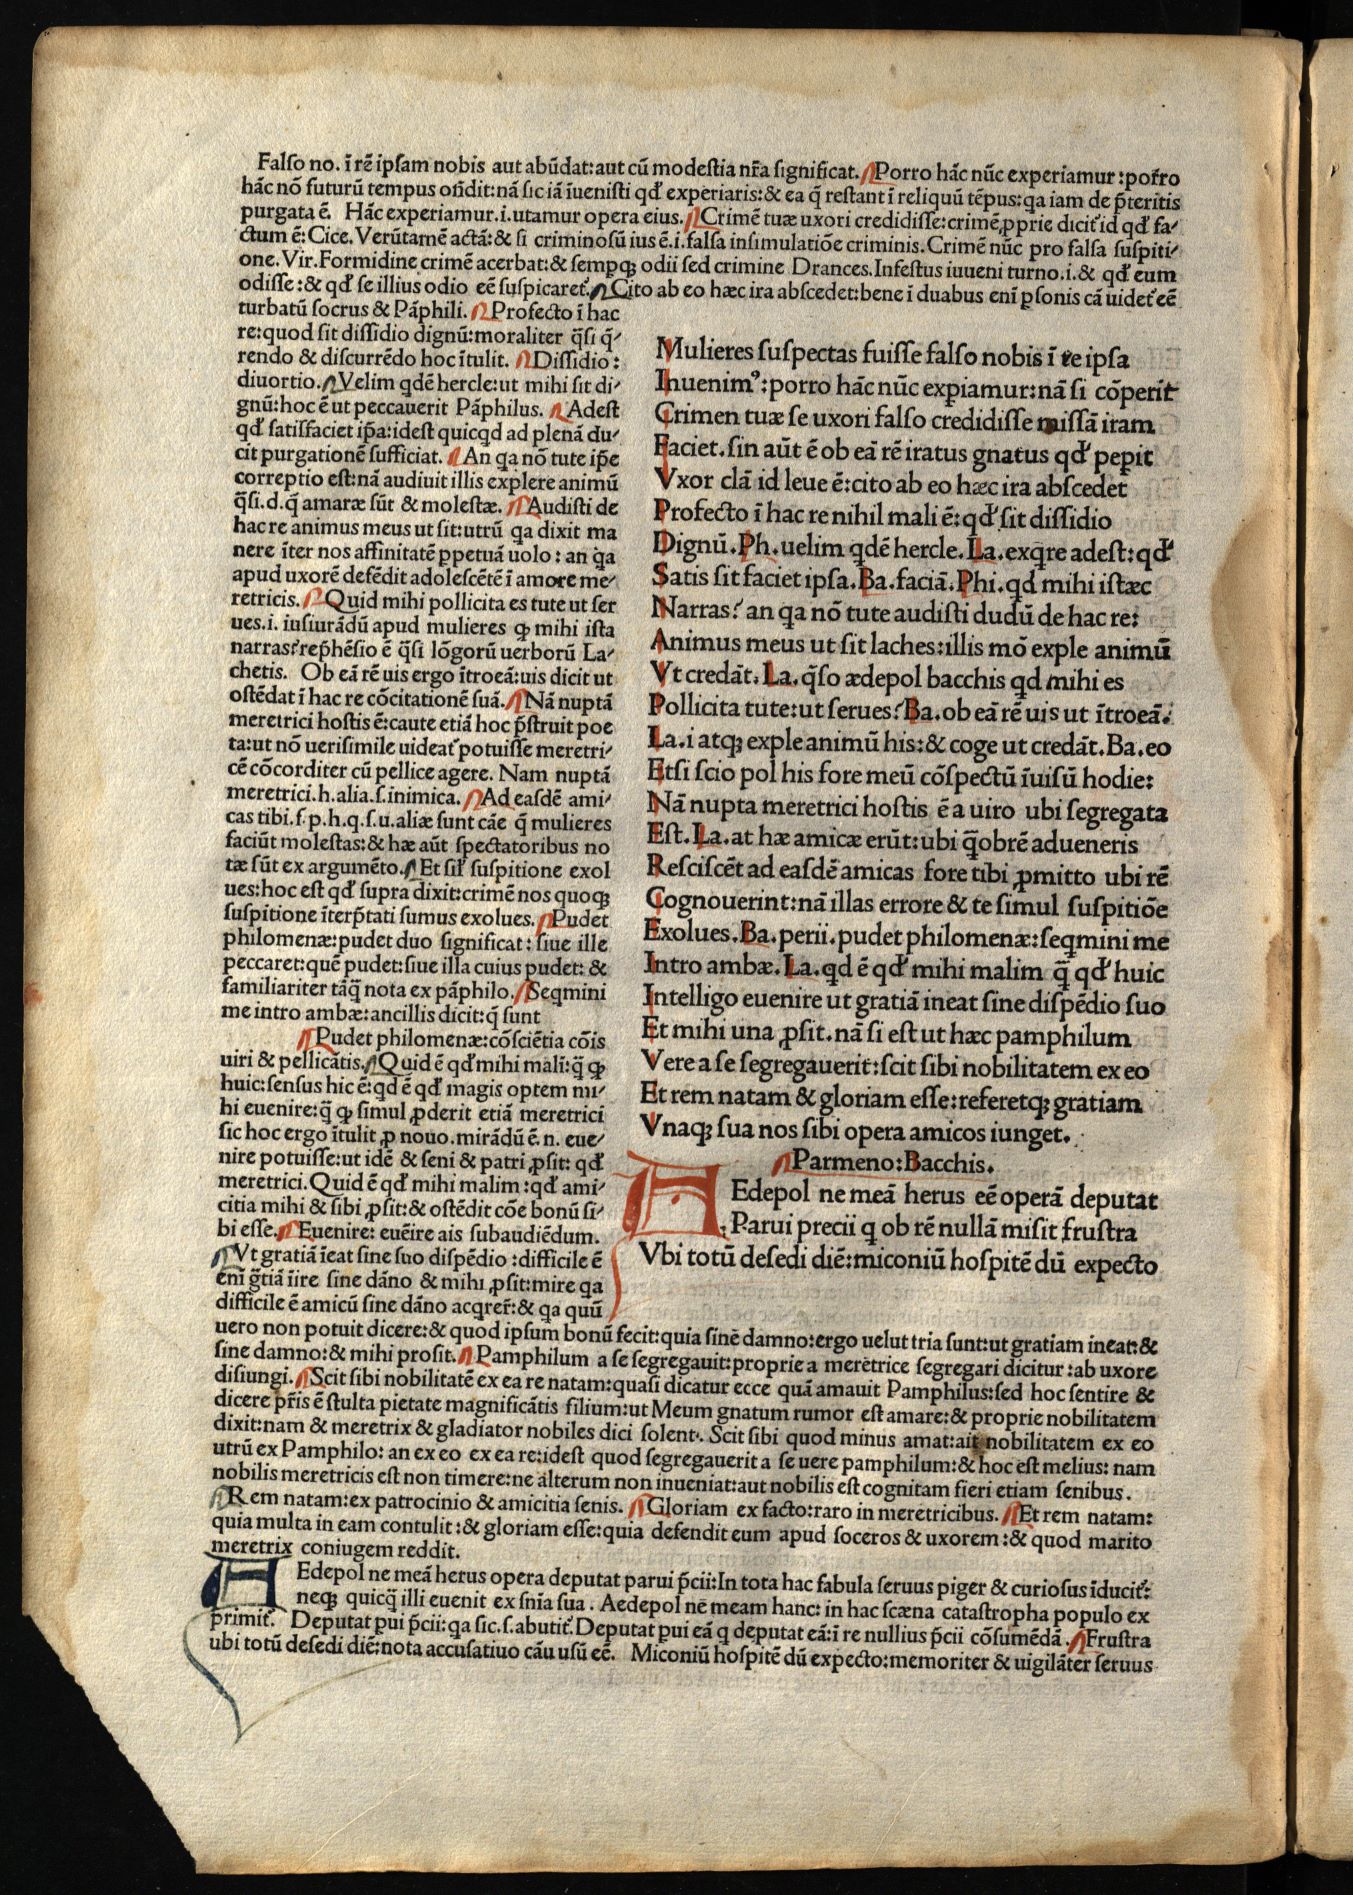 Falso no. ī rē ipsam nobis aut abūdat: aut cū modestia nr̄a significat. Porro hāc nūc experiamur: por̄ro
hāc nō futurū tempus ofīdit: nā sic iā īuenisti qd' experiaris: & ea q̄ restant ī reliquū tēpus: qa iam de p̄teritis
purgata ē. Hāc experiamur. i. utamur opera eius. Crimē tuæ uxori credidisse: crimē ꝓprie dicit᷑ id qd' fa⸗
ctum ē: Cice. Verūtamē actā: & si criminosū ius ē. i. falsa insimulatiōe criminis. Crimē nūc pro falsa suspiti⸗
one. Vir. Formidine crimē acerbat: & semꝑqꝫ odii sed crimine Drances. Infestus iuueni turno. i. & qd' eum
odisse: & qd' se illius odio eē suspicaret᷑. Cito ab eo hæc ira abscedet: bene ī duabus enī ꝑsonis cā uidet᷑ eē
turbatū socrus & Pāphili. Profecto ī hac
re: quod sit dissidio dignū: moraliter q̄si q̄⸗
rendo & discurrēdo hoc ītulit. Dissidio:
diuortio. Velim qdē hercle: ut mihi sit di⸗
gnū: hoc ē ut peccauerit Pāphilus. Adest
qd' satisfaciet ip̄a: idest quicqd ad plenā du⸗
cit purgationē sufficiat. An qa nō tute ip̄e
correptio est: nā audiuit illis explere animū
q̄si. d. q̄ amaræ sūt & molestæ. Audisti de
hac re animus meus ut sit: utrū qa dixit ma
nere īter nos affinitatē ꝑpetuā uolo: an qa
apud uxorē defēdit adolescētē ī amore me⸗
retricis. Quid mihi pollicita es tute ut ser
ues. i. iusiurādū apud mulieres ꝙ mihi ista
narras? rep̄hēsio ē q̄si lōgorū uerborū La⸗
chetis. Ob eā rē uis ergo ītroeā: uis dicit ut
ostēdat ī hac re cōcitationē suā. Nā nuptā
meretrici hostis ē: caute etiā hoc p̄struit poe
ta: ut nō uerisimile uideat᷑ potuisse meretri⸗
cē cōcorditer cū pellice agere. Nam nuptā
meretrici. h. alia. s. inimica. Ad easdē ami⸗
cas tibi. f. p. h. q. s. u. aliæ sunt cāe q̄ mulieres
faciūt molestas: & hæ aūt spectatoribus no
tæ sūt ex argumēto. Et sil' suspitione exol
ues: hoc est qd' supra dixit: crimē nos quoqꝫ
suspitione īterp̄tati sumus exolues. Pudet
philomenæ: pudet duo significat: siue ille
peccaret: quē pudet: siue illa cuius pudet: &
familiariter tāq̄ nota ex pāphilo. Seqmini
me intro ambæ: ancillis dicit: q̄ sunt
Pudet philomenæ: cōsciētia cōis
uiri & pellicātis. Quid ē qd' mihi mali: q̄ ꝙ
huic: sensus hic ē: qd ē qd' magis optem mi⸗
hi euenire: q̄ ꝙ simul ꝓderit etiā meretrici
sic hoc ergo ītulit ꝓ nouo. mirādū ē. n. eue⸗
nire potuisse: ut idē & seni & patri ꝓsit: qd'
meretrici. Quid ē qd' mihi malim: qd' ami⸗
citia mihi & sibi ꝓsit: & ostēdit cōe bonū si⸗
bi esse. Euenire: euēire ais subaudiēdum.
Vt gratiā īeat sine suo dispēdio: difficile ē
enī g̃tiā īire sine dāno & mihi ꝓsit: mire qa
difficile ē amicū sine dāno acqrer̄: & qa quū
Mulieres suspectas fuisse falso nobis ī re ipsa
Inuenimꝰ: porro hāc nūc expiamur: nā si cōperit
Crimen tuæ se uxori falso credidisse missā iram
Faciet. sin aūt ē ob eā rē iratus gnatus qd' peperit
Vxor clā id leue ē: cito ab eo hæc ira abscedet
Profecto ī hac re nihil mali ē: qd' sit dissidio
Dignū. Ph. uelim qdē hercle. La. exqre adest: qd'
Satis sit faciet ipsa. Ba. faciā. Phi. qd mihi istæc
Narras? an qa nō tute audisti dudū de hac re:
Animus meus ut sit laches: illis mō exple animū
Vt credāt. La. q̄so ædepol bacchis qd mihi es
Pollicita tute: ut serues? Ba. ob eā rē uis ut ītroeā.
La. i atqꝫ exple animū his: & coge ut credāt. Ba. eo
Etsi scio pol his fore meū cōspectū īuisū hodie:
Nā nupta meretrici hostis ē a uiro ubi segregata
Est. La. at hæ amicæ erūt: ubi q̄obrē adueneris
Resciscēt ad easdē amicas fore tibi ꝓmitto ubi rē
Cognouerint: nā illas errore & te simul suspitiōe
Exolues. Ba. perii. pudet philomenæ: seqmini me
Intro ambæ. La. qd ē qd' mihi malim q̄ qd' huic
Intelligo euenire ut gratiā ineat sine dispēdio suo
Et mihi una ꝓsit. nā si est ut hæc pamphilum
Vere a se segregauerit: scit sibi nobilitatem ex eo
Et rem natam & gloriam esse: referetqꝫ gratiam
Vnaqꝫ sua nos sibi opera amicos iunget.
Parmeno: Bacchis.
AEdepol ne meā herus eē operā deputat
Parui precii q ob rē nullā misit frustra
Vbi totū desedi diē: miconiū hospitē dū expecto
uero non potuit dicere: & quod ipsum bonū fecit: quia sinē damno: ergo uelut tria sunt: ut gratiam ineat: &
sine damno: & mihi prosit. Pamphilum a se segregauit: proprie a meretrice segregari dicitur: ab uxore
disiungi. Scit sibi nobilitatē ex ea re natam: quasi dicatur ecce quā amauit Pamphilus: sed hoc sentire &
dicere pr̄is ē stulta pietate magnificātis filium: ut Meum gnatum rumor est amare: & proprie nobilitatem
dixit: nam & meretrix & gladiator nobiles dici solent. Scit sibi quod minus amat: ait nobilitatem ex eo
utrū ex Pamphilo: an ex eo ex ea re: idest quod segregauerit a se uere pamphilum: & hoc est melius: nam
nobilis meretricis est non timere: ne alterum non inueniat: aut nobilis est cognitam fieri etiam senibus.
Rem natam: ex patrocinio & amicitia senis. Gloriam ex facto: raro in meretricibus. Et rem natam:
quia multa in eam contulit: & gloriam esse: quia defendit eum apud soceros & uxorem: & quod marito
meretrix coniugem reddit.
AEdepol ne meā herus opera deputat parui p̄cii: In tota hac fabula seruus piger & curiosus īducit᷑:
neqꝫ quicq̄ illi euenit ex sn̄ia sua. Aedepol nē meam hanc: in hac scæna catastropha populo ex
primit᷑. Deputat ꝑui p̄cii: qa sic. s. abutit᷑. Deputat ꝑui eā q deputat eā: ī re nullius p̄cii cōsumēdā. Frustra
ubi totū desedi diē: nota accusatiuo cāu usū eē. Miconiū hospitē dū expecto: memoriter & uigilāter seruus